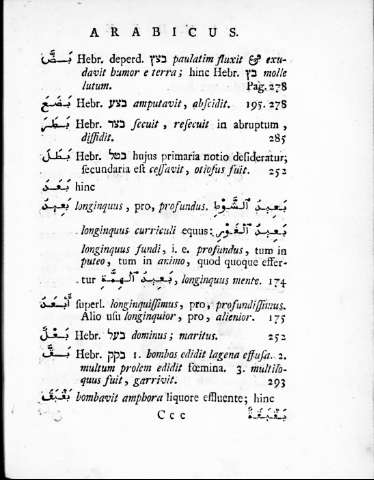 ARABICUS.
بَـضَّ Hebr. deperd. בצץ paulatim fluxit & exu-
davit humor e terra; hinc Hebr. בץ molle
lutum. Pag. 278
بَـضَـعَ Hebr. בצע amputavit, abscidit. 195. 278
بَـظَـرَ Hebr. בצר secuit, resecuit in abruptum,
diffidit. 285
بَـطَـلَ Hebr. בטל hujus primaria notio desideratur;
secundaria est cessavit, otiosus fuit. 252
بَـعُـدَ hinc
بَـعِـيـدٌ longinquus, pro, profundus. بَـعِـيـدُ الـشَّـوْطِ
longinquus curriculi equus: بَـعِـيـدُ الـغَـوْرِ
longinquus fundi, i. e. profundus, tum in
puteo, tum in animo, quod quoque effer-
tur بَـعِـيـدُ الـهِـمَّـةِ, longinquus mente. 174
أَبْـعَـدُ superl. longinquissimus, pro, profundissimus.
Alio usu longinquior, pro, alienior. 175
بَـعْـلٌ Hebr. בעל dominus; maritus. 252
بَـقَّ Hebr. בקק 1. bombos edidit lagena effusa. 2.
multum prolem edidit fœmina. 3. multilo-
quus fuit, garrivit. 293
بَـقْـبَـقَ bombavit amphora liquore effluente; hinc
Ccc بَـقْـبَـقَـةٌ